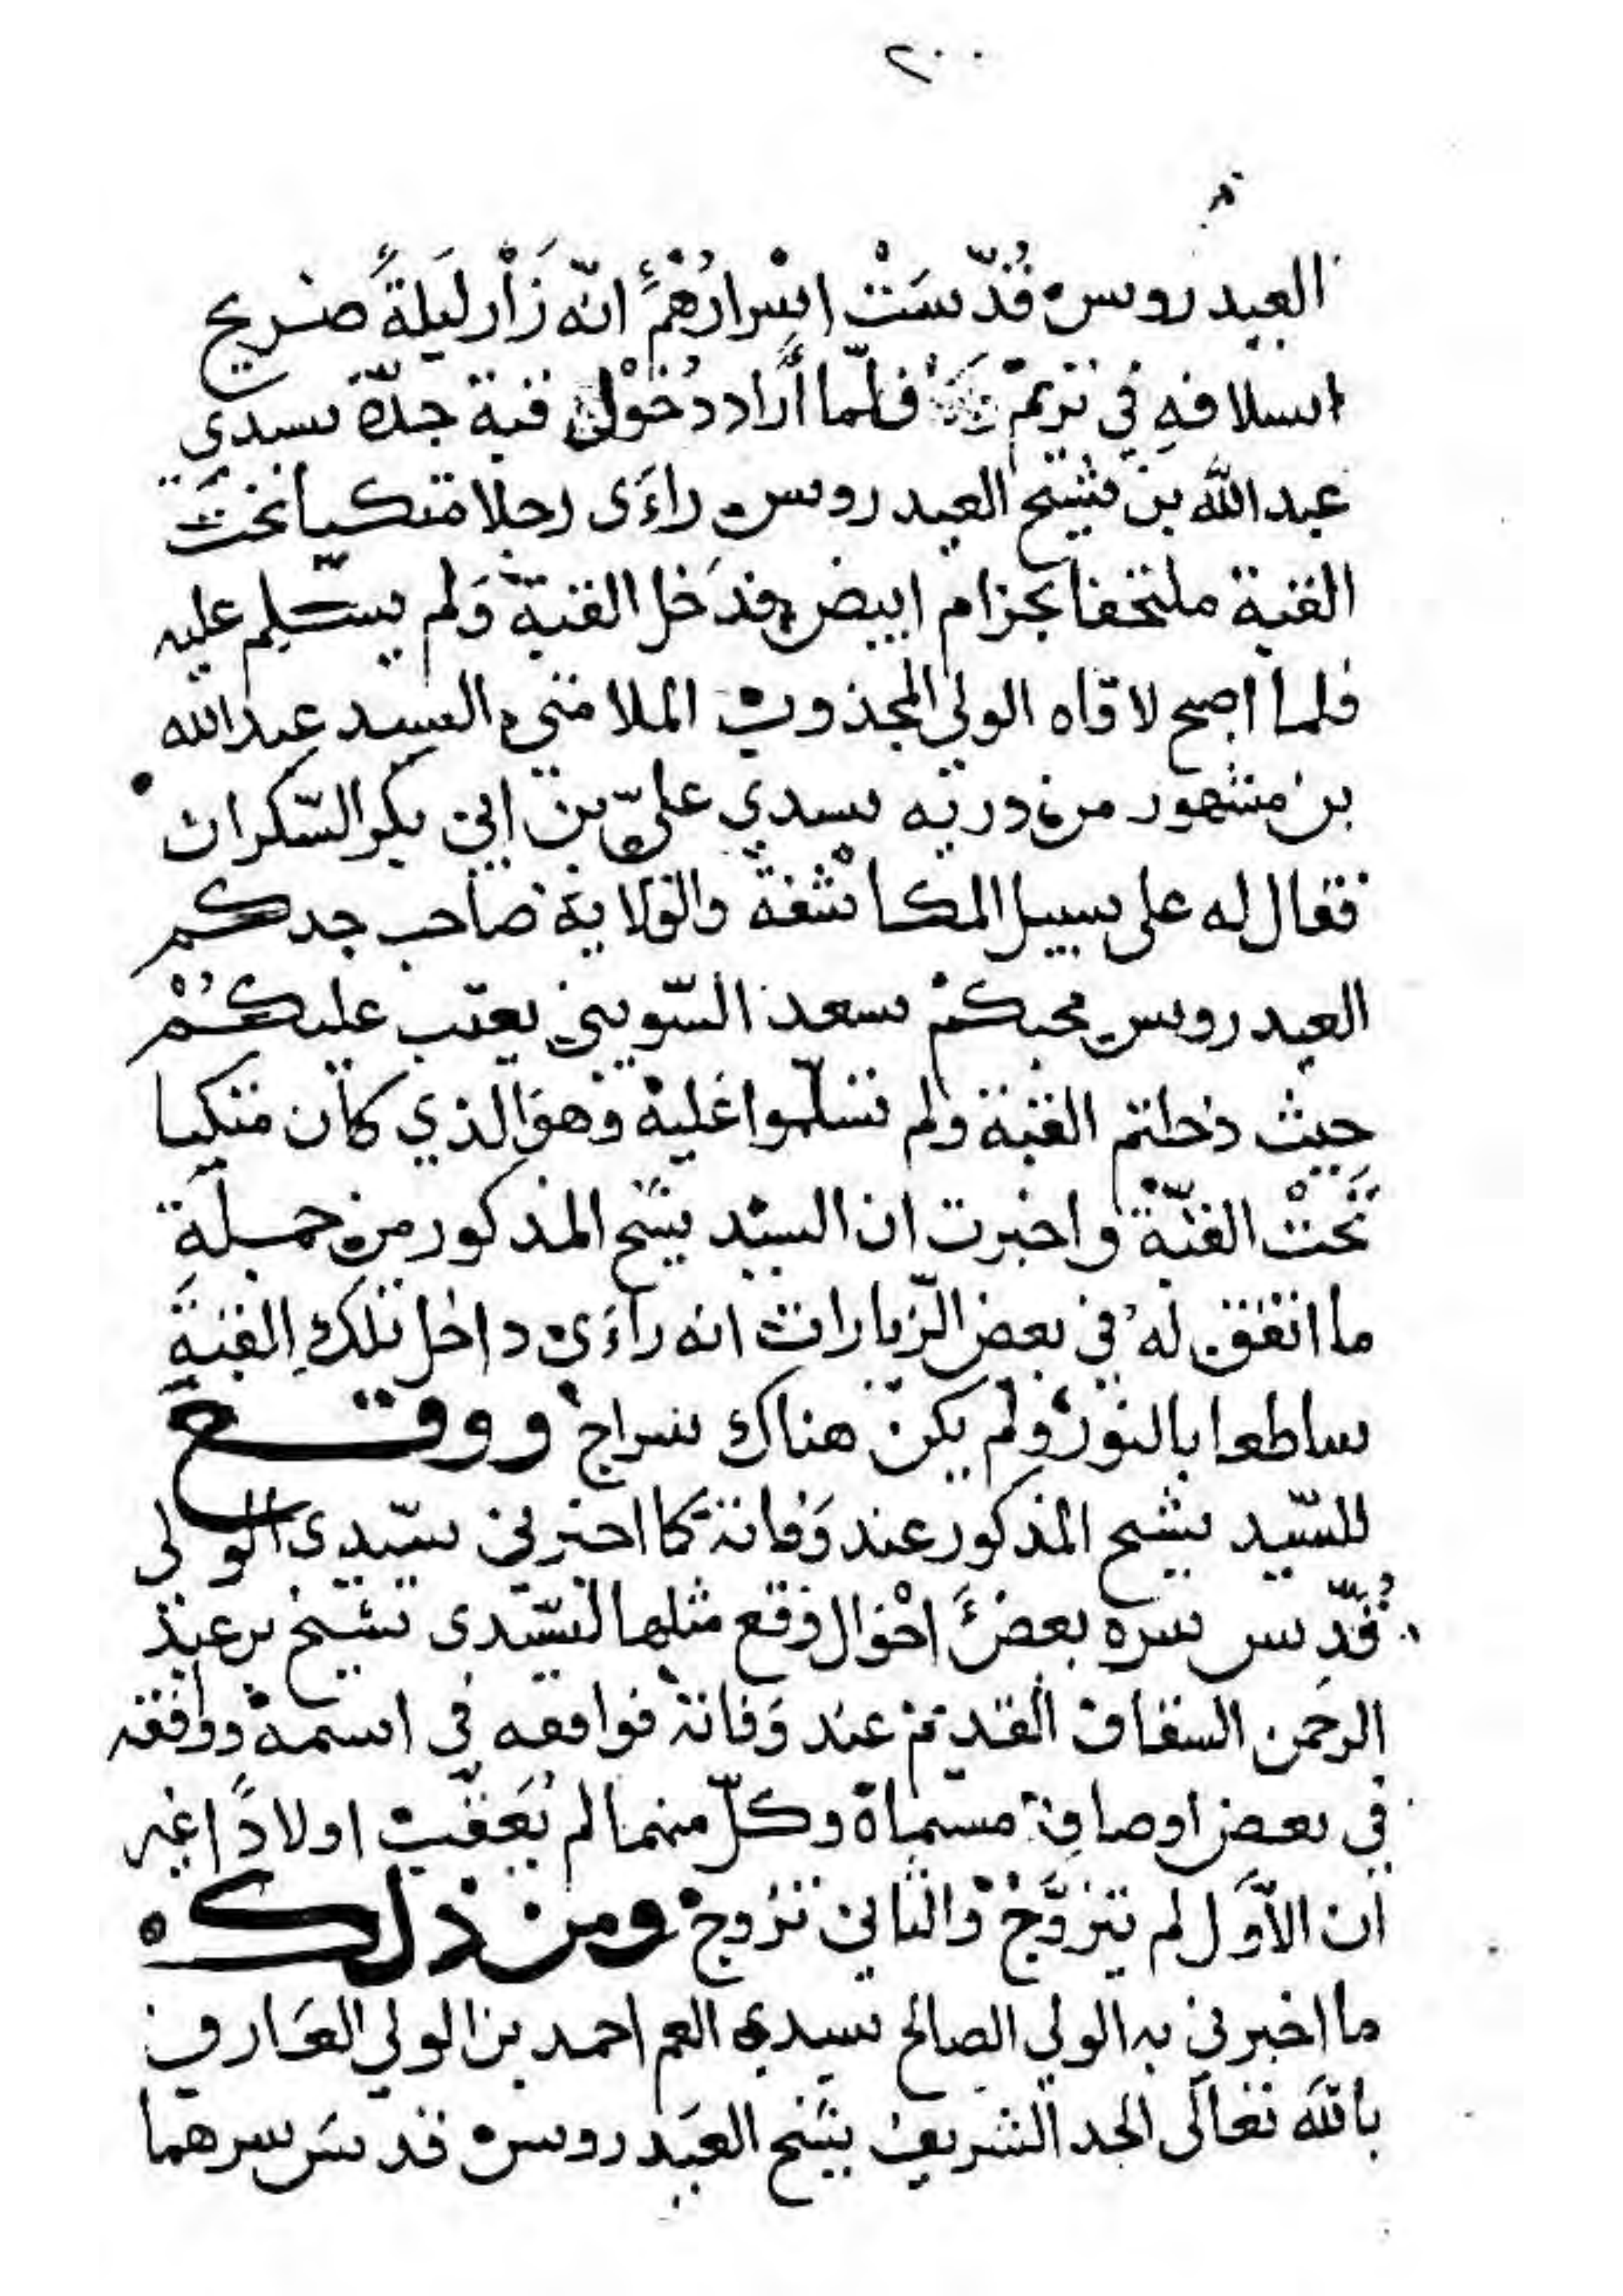 ٢٠٠
العيدروس قُدّسَتْ اسْرارُهُمْ انّه زَاْر لَيلةً ضريح
اسلافهِ في تريم فلمّا أراد دُخُوْل قبة جدّه سيدي
عبدالله بن شيخ العيدروس راءَى رجلا متكيا تحَت
القبة ملتحفا بحزام ابيض فدَخل القبة وَلم يسَلم عليه
فلما اصبح لاقاه الولي المجذوب الملامتي السيد عبدالله
بن مشهور من درية سيدي عليّ بن ابي بكر السّكران
فقال له على سبيل المكاشفة والوَلاية صاحب جدكم
العيدروس محبكم سعد السّويني يعتب عليكُمْ
حيث دخلتم القبة ولم تسَلّموا عَليه وهوَ الذي كان متكيا
تَحتْ القبّة واخبرت ان السيّد شيخ المذكور من جملَة
ما اتفق لهُ في بعض الزّيارات انه راءَى داخل تلكِ القبةَ
ساطعا بالنور ولم يكن هناك سراج ووقع
للسّيد شيخ المذكور عند وَفاته كما اخبرني سيّدي الولي
قُدّس سره بعضَ احْوَال وَقع مثلها لسّيدي شيخ بن عبد
الرحمن السقاف القديم عند وَفاته فوافقه في اسمه ووافقه
في بعض اوصاف مسماه وكلّ منهما لم يُعَقّب اولاداً غير
ان الاوّل لم يتزوَّجْ والثاني تزوج ومن ذلك
ما اخبرني به الولي الصالح سيدي العم احمد بن الولي العَارف
بالله تعالى الجد الشريف شيخ العيَدروس قدسَ سرهما